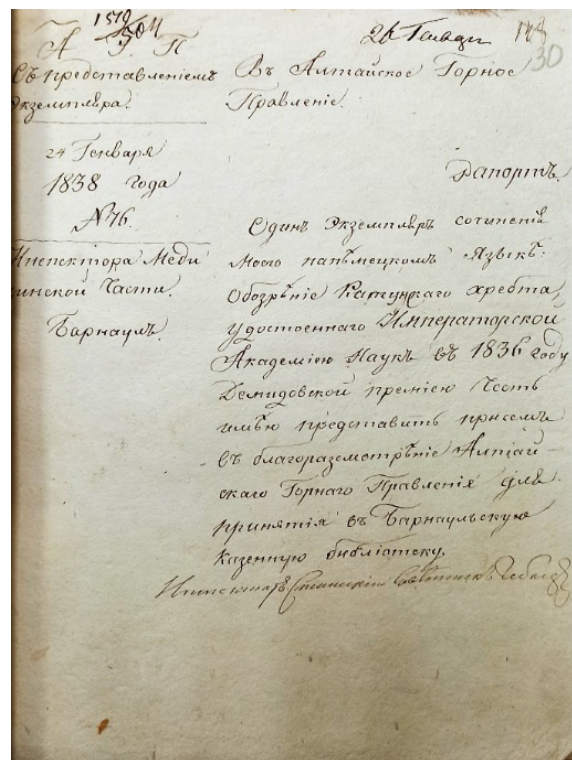 1579
5011
26 Генваря
30
А Г П
Съ представленіемъ
Экземпляра.
24 Генваря
1838 года
№ 76.
Инспектора Меди
цинской Части.
Барнаулъ.
Въ Алтайское Горное
Правленіе.
Рапортъ.
Одинъ Экземпляръ сочиненія
моего на нѣмецкомъ Языкѣ:
Обозрѣніе Катунскаго хребта,
удостоеннаго Императорской
Академіею Наукъ въ 1836 году
Демидовской преміею Честь
имѣю представить при семъ
въ благоразсмотрѣніе Алтай
скаго Горнаго Правленія для
принятія въ Барнаульскую
Казенную библіотеку.
Инспекторъ Статскій Совѣтникъ Геблеръ